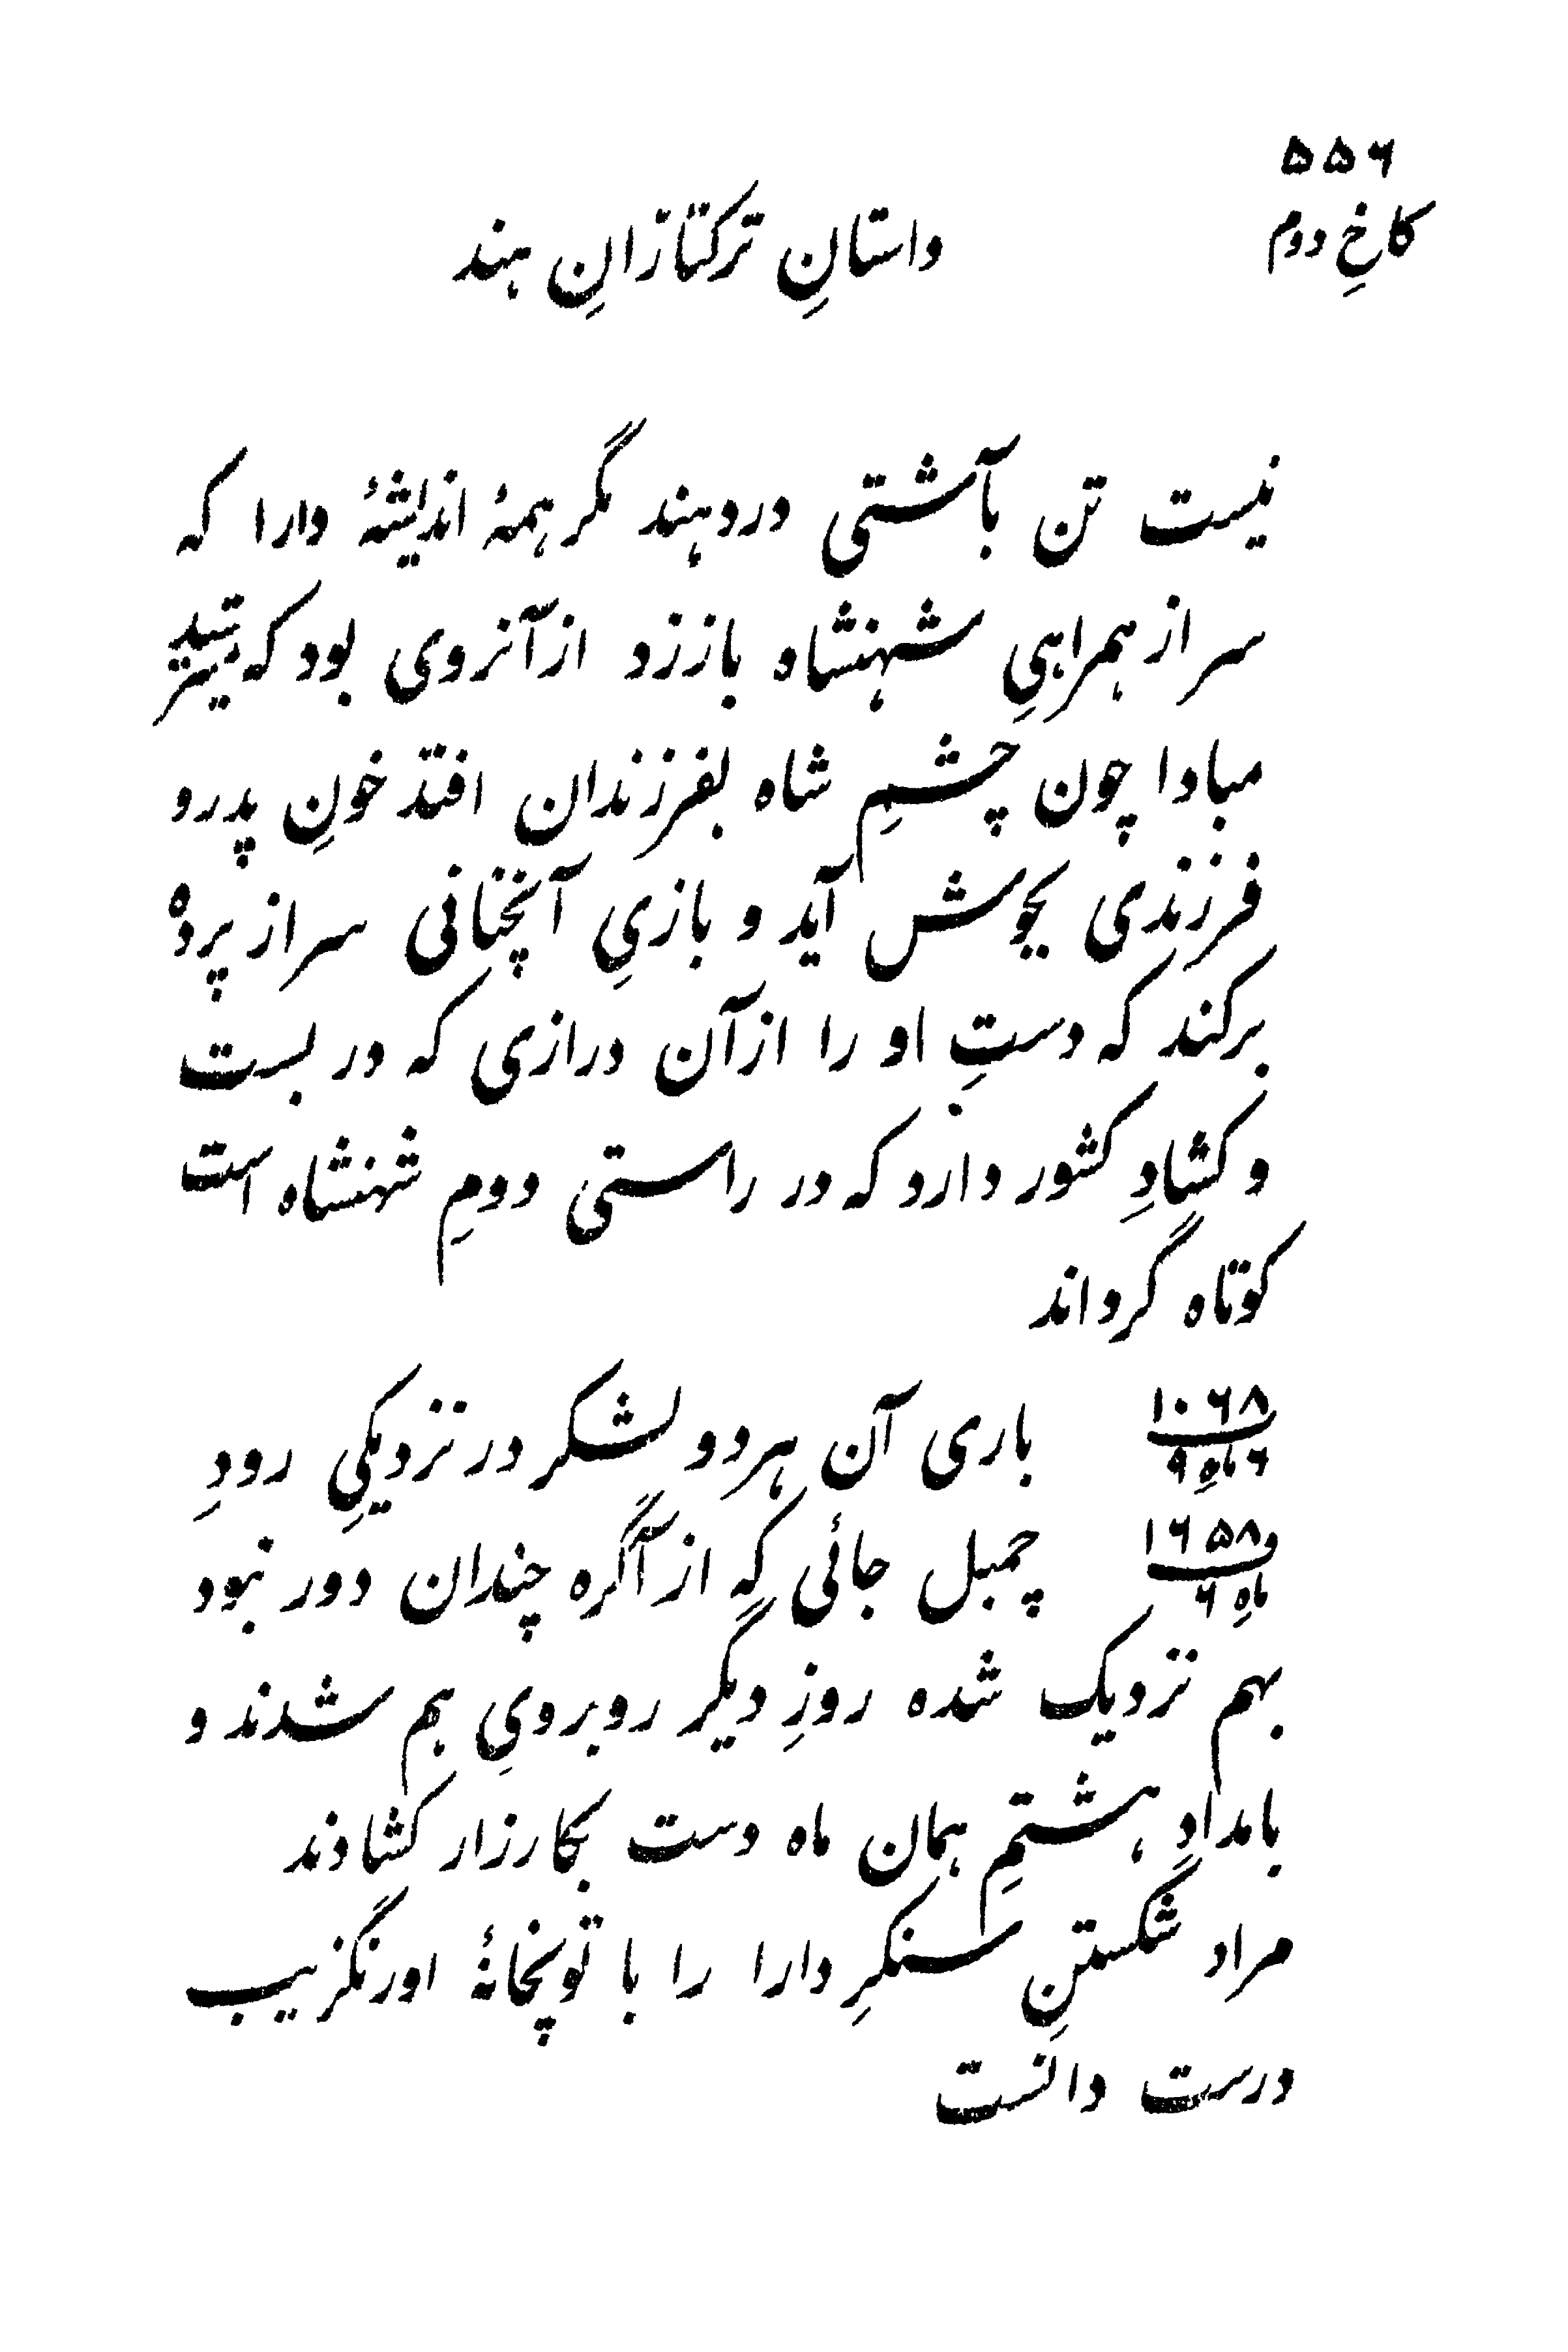 ۵۵۶
کاخِ دوم
داستانِ ترکتازانِ هند
نیست تن بآشتی دردهند مگر همهٔ اندیشهٔ دارا که
سر از همراهیِ شهنشاه باز زد از آنروی بود که میترسید
مبادا چون چشمِ شاه بفرزندان افتد خونِ پدر و
فرزندی بجوش آید و بازیِ آنچنانی سر از پرده
برکند که دستِ او را از آن درازی که در بست
و کشادِ کشور دارد که در راستی دومِ شهنشاه است
کوتاه گرداند
۱۰۶۸
۶ ماهِ ۹
باری آن هر دو لشکر در نزدیکیِ رودِ
۱۶۵۸
ماهِ ۶
چمبل جائی که از آگره چندان دور نبود
بهم نزدیک شده روزِ دیگر روبرویِ هم شدند و
بامدادِ هشتمِ همان ماه دست بکارزار کشادند
مراد شکستنِ سنگرِ دارا را با توپخانهٔ اورنگزیب
درست دانست